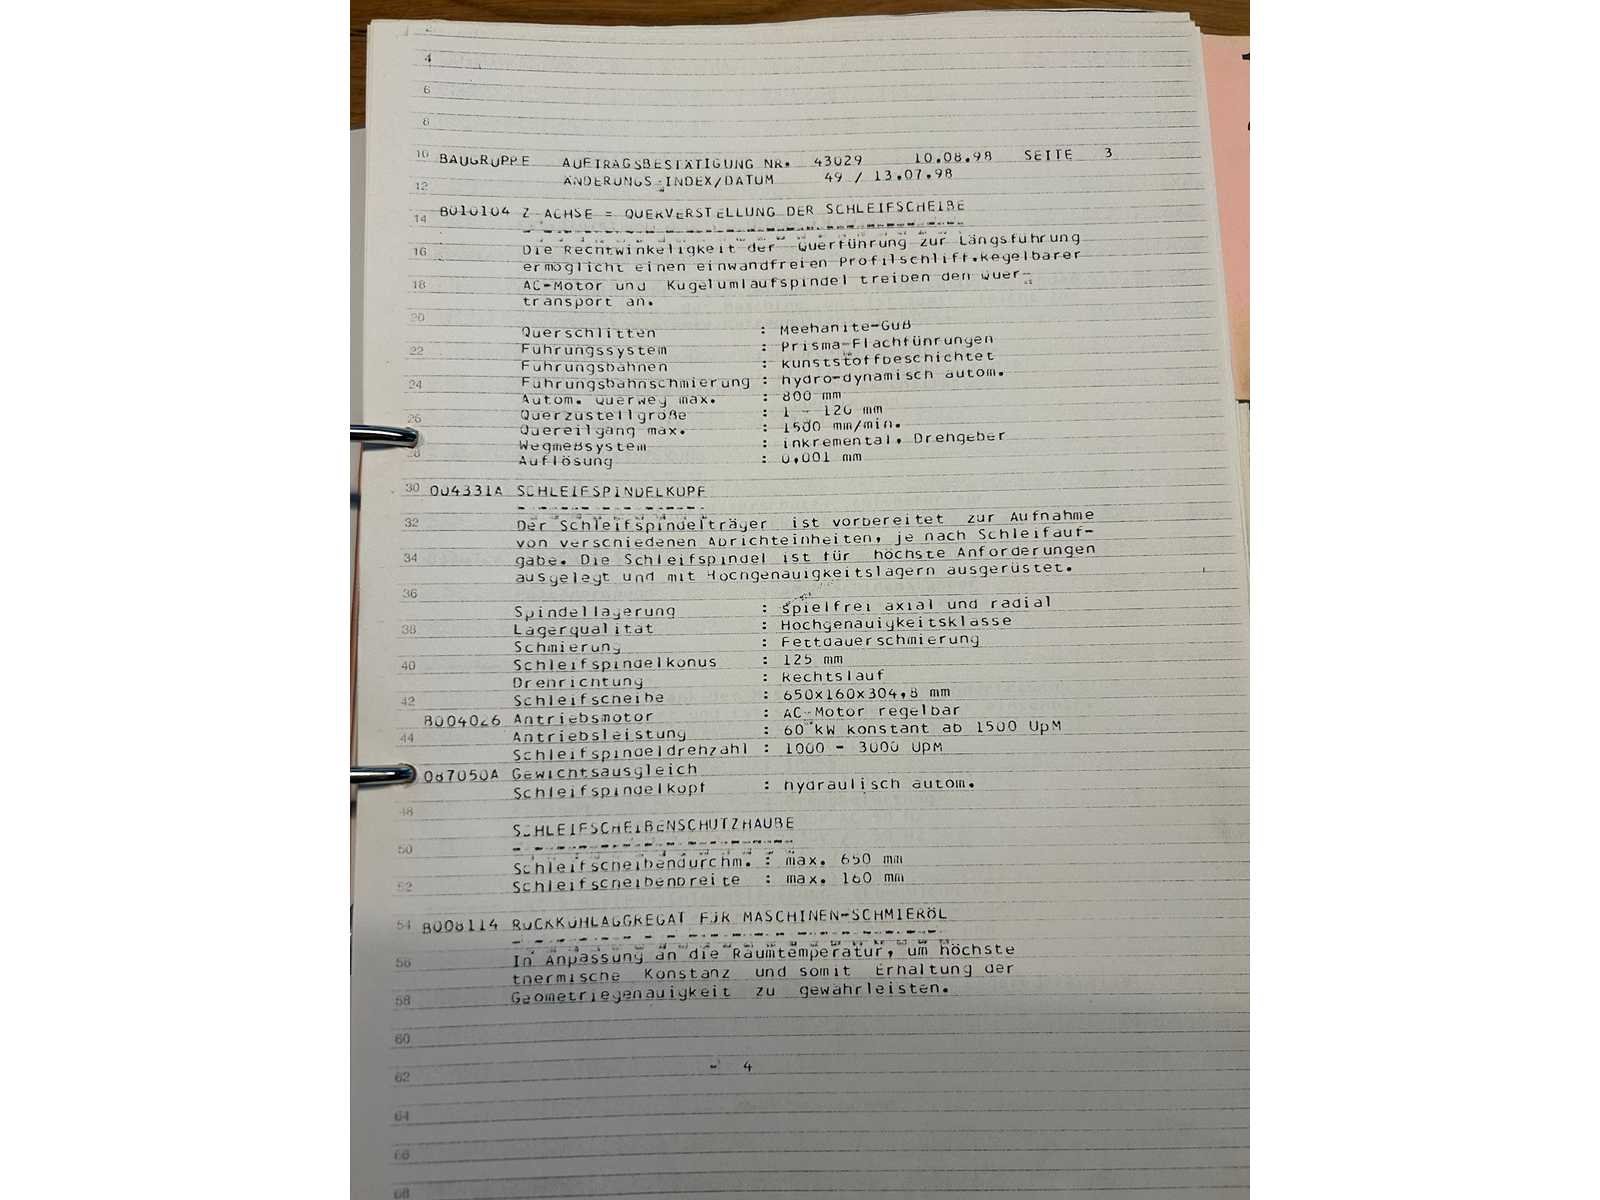 2
4
6
8
10 BAUGRUPPE AUFTRAGSBESTÄTIGUNG NR. 43029 10.08.98 SEITE 3
12 ÄNDERUNGS-INDEX/DATUM 49 / 13.07.98
14 B010104 Z-ACHSE = QUERVERSTELLUNG DER SCHLEIFSCHEIBE
16 Die Rechtwinkeligkeit der Querführung zur Längsführung
ermöglicht einen einwandfreien Profilschliff.Regelbarer
18 AC-Motor und Kugelumlaufspindel treiben den Quer-
transport an.
20
Querschlitten : Meehanite-Guß
22 Führungssystem : Prisma-Flachführungen
Führungsbahnen : kunststoffbeschichtet
24 Führungsbahnschmierung : hydro-dynamisch autom.
Autom. Querweg max. : 800 mm
26 Querzustellgröße : 1 - 120 mm
Quereilgang max. : 1500 mm/min.
28 Wegmeßsystem : inkremental. Drehgeber
Auflösung : 0,001 mm
30 004331A SCHLEIFSPINDELKOPF
32 Der Schleifspindelträger ist vorbereitet zur Aufnahme
von verschiedenen Abrichteinheiten, je nach Schleifauf-
34 gabe. Die Schleifspindel ist für höchste Anforderungen
ausgelegt und mit Hochgenauigkeitslagern ausgerüstet.
36
Spindellagerung : spielfrei axial und radial
38 Lagerqualität : Hochgenauigkeitsklasse
Schmierung : Fettdauerschmierung
40 Schleifspindelkonus : 125 mm
Drehrichtung : Rechtslauf
42 Schleifscheibe : 650x160x304,8 mm
B004026 Antriebsmotor : AC-Motor regelbar
44 Antriebsleistung : 60 kW konstant ab 1500 UpM
Schleifspindeldrehzahl : 1000 - 3000 UpM
087050A Gewichtsausgleich
Schleifspindelkopf : hydraulisch autom.
48
SCHLEIFSCHEIBENSCHUTZHAUBE
50
Schleifscheibendurchm. : max. 650 mm
52 Schleifscheibenbreite : max. 160 mm
54 B008114 RÜCKKÜHLAGGREGAT FÜR MASCHINEN-SCHMIERÖL
56 In Anpassung an die Raumtemperatur, um höchste
thermische Konstanz und somit Erhaltung der
58 Geometriegenauigkeit zu gewährleisten.
60
- 4
62
64
66
68